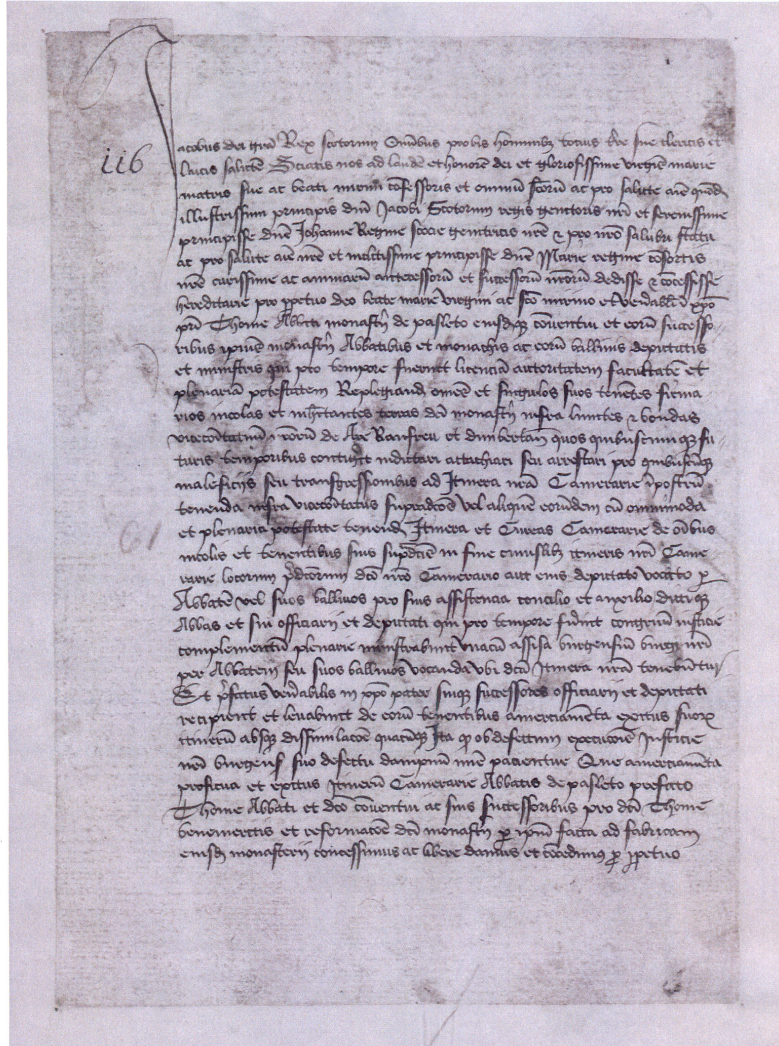 116
Jacobus dei gra Rex scotorum Omnibus probis hominibus totius tre sue clericis et
laicis saltem Sciatis nos ad laudem et honore dei et gloriosissime virginis marie
matris sue ac beati mirini cofessoris et omniu scoru ac pro salute aie quond
illustrissimi principis dni Jacobi Scotorum regis genitoris nri et serenissime
principisse dne Johanne Regine scocie genitricis nre & pro nro salubri statu
ac pro salute aie nre et maltissime principisse dne Marie regine cosortis
nre carissime ac animaru antecessoru et successoru nroru dedisse & cocessisse
hereditarie pro ppetuo deo beate marie virgini ac sco mirino et venabili xpo
pri Thome Abbati monastrij de pasleto eiusdeq conventui et eoru successo
ribus ipius monastrij Abbatibus et monachis ac eoru ballivis deputatis
et ministris qui pro tempore fuerint licencia autoritatem facultate et
plenaria potestatem Replegiand omes et singulos suos tenetes firma
rios incolas et inhitantes terras dci monastrij infra limites & bondas
vicecotatuu nroru de Are Ranfreu et dunbertan quos quibuscumque fu
turis temporibus contigit indictari attachiari seu arrestari pro quibuscuq
maleficijs seu transgressionibus ad Itinera nra Camerarie iposteru
tenenda infra vicecotatus supradcos vel aliquem eorundem cu omnimoda
et plenaria potestate tenend Itinera et Cureas Camerarie de oibus
incolis et tenentibus suis supdcis in fine cuiuslibet itineris nri Came
rarie locorum pdcorum dco nro Camerario aut eius deputato vocato p
Abbatem vel suos ballivos pro suis assistencia concilio et auxilio dictiq
Abbas et sui officiarij et deputati qui pro tempore fuerint congruu iusticie
complementu plenarie monstrabunt assisa burgensiu burgi nri
per Abbatem seu suos ballivos vocanda ubi dca Itinera nra tenebuntur
Et pfatus venabilis in xpo pater suique successores officiarij et deputati
recipient et levabunt de eoru tenentibus amerciamenta exitus suorum
itineru absq dissimulacoe quacuq Ita q ob defectum execucois Justicie
nri burgeses suo defectu dampnu paciantur Que amerciamenta
proficua et exitus Itineru Camerarie Abbatis de pasleto prefato
Thome Abbati et dco coventui ac suis successoribus pro dci Thome
benemeritis et reformacoe dci monastrij p ipm facta ad fabricam
eiusd monasterij concessimus ac libere damus et cocedimus p ppetuo